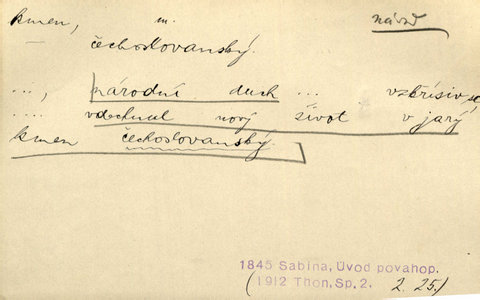 kmen, m. národ
— čechoslovanský.
..., národní duch ... vzkřísiv se,
.... vdechnul nový život v jarý
kmen čechoslovanský.
1845 Sabina, Úvod povahop.
(1912 Thon, Sp. 2. 2. 25.)